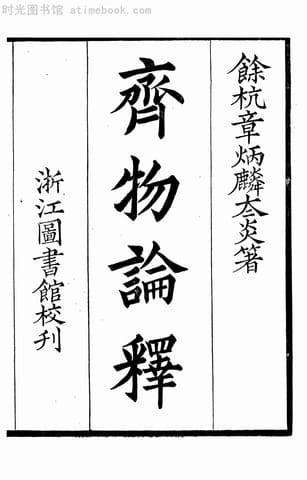 时光图书馆 - www.atimebook.com
餘杭章炳麟太炎箸
齊物論釋
浙江圖書館校刊